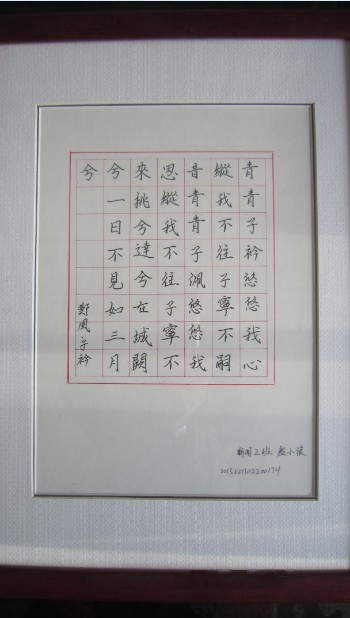 青青子衿悠悠我心
縱我不往子寧不嗣
音青青子佩悠悠我
思縱我不往子寧不
來挑兮達兮在城闕
兮一日不見如三月
兮
鄭風子衿
2班 小